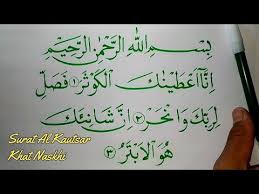 بِسْمِ اللّٰهِ الرَّحْمٰنِ الرَّحِيْمِ
اِنَّآ اَعْطَيْنٰكَ الْكَوْثَرَ ۝١ فَصَلِّ
لِرَبِّكَ وَانْحَرْ ۝٢ اِنَّ شَانِئَكَ
هُوَ الْاَبْتَرُ ۝٣
Surat Al Kautsar
Khat Naskhi